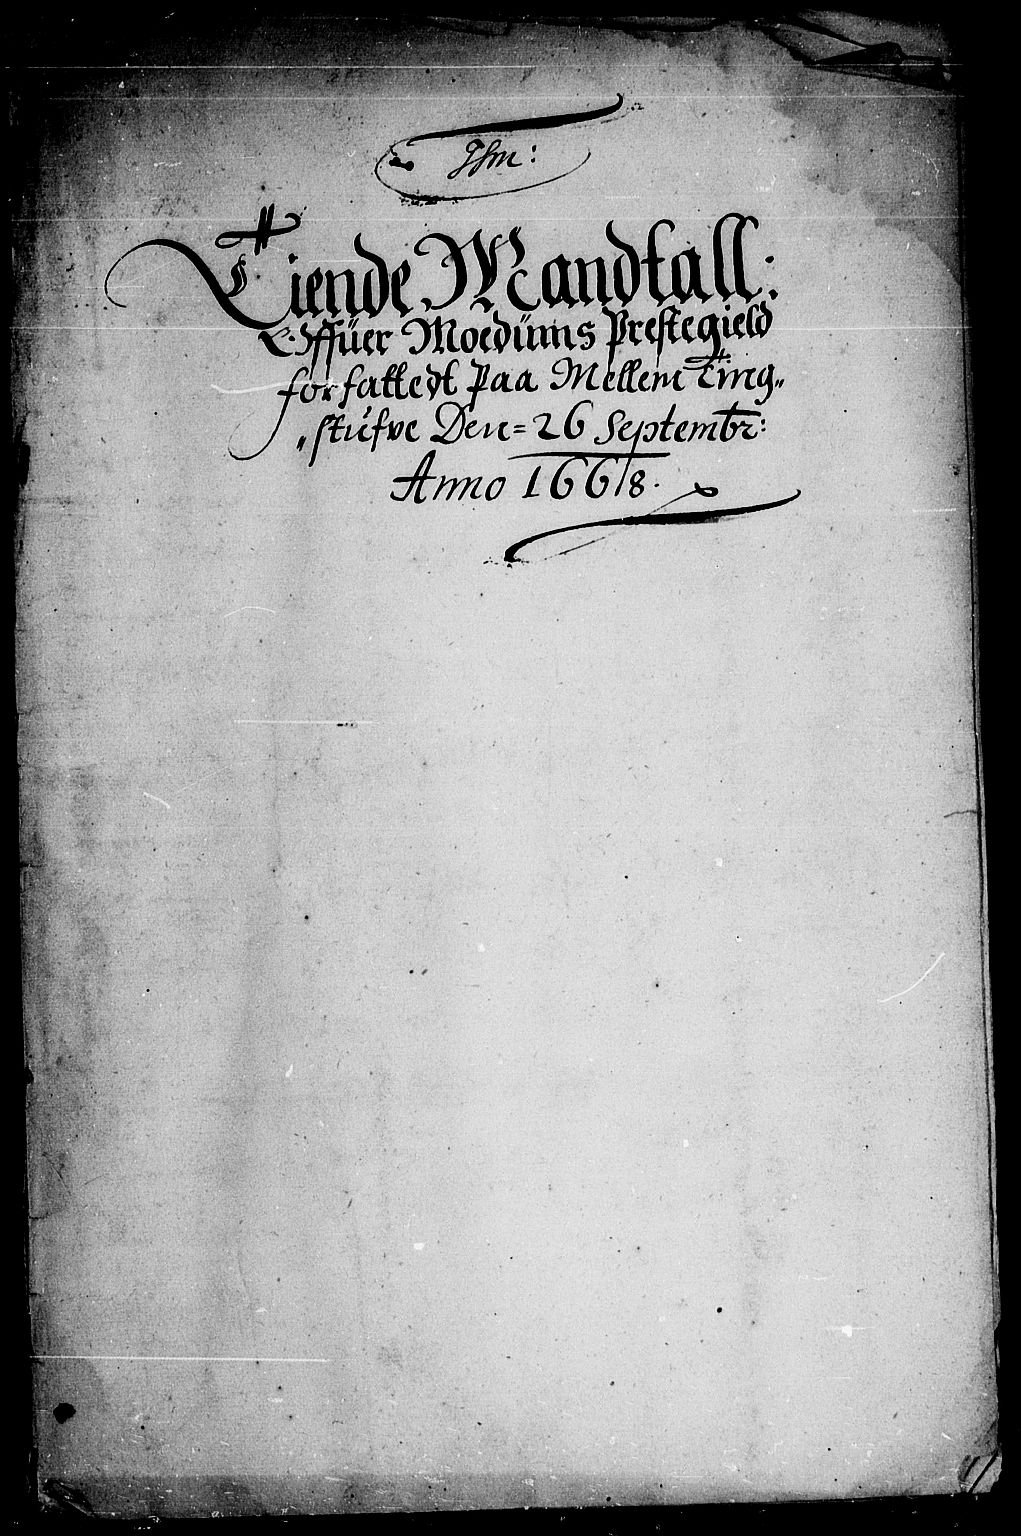 Tiende Mandtall:
Offüer Moedüms Prestegield
forfattedt Paa Mellem Ting„
„stüfve Den= 26 Septembr:
Anno 1668.